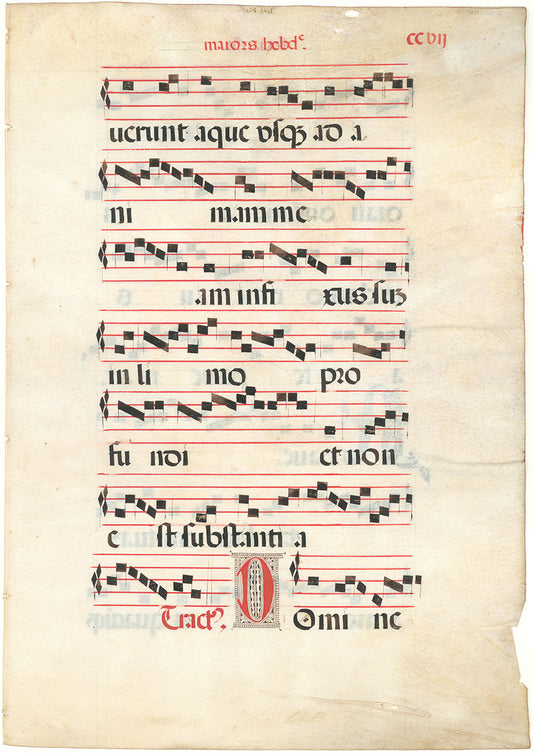 maiors hebd^e.
CCVIJ
uerunt aque vsq3 ad a
ni mam me
am infi xus su3
in li mo pro
fu ndi et non
e st substanti a
Tract^9. D Omi ne